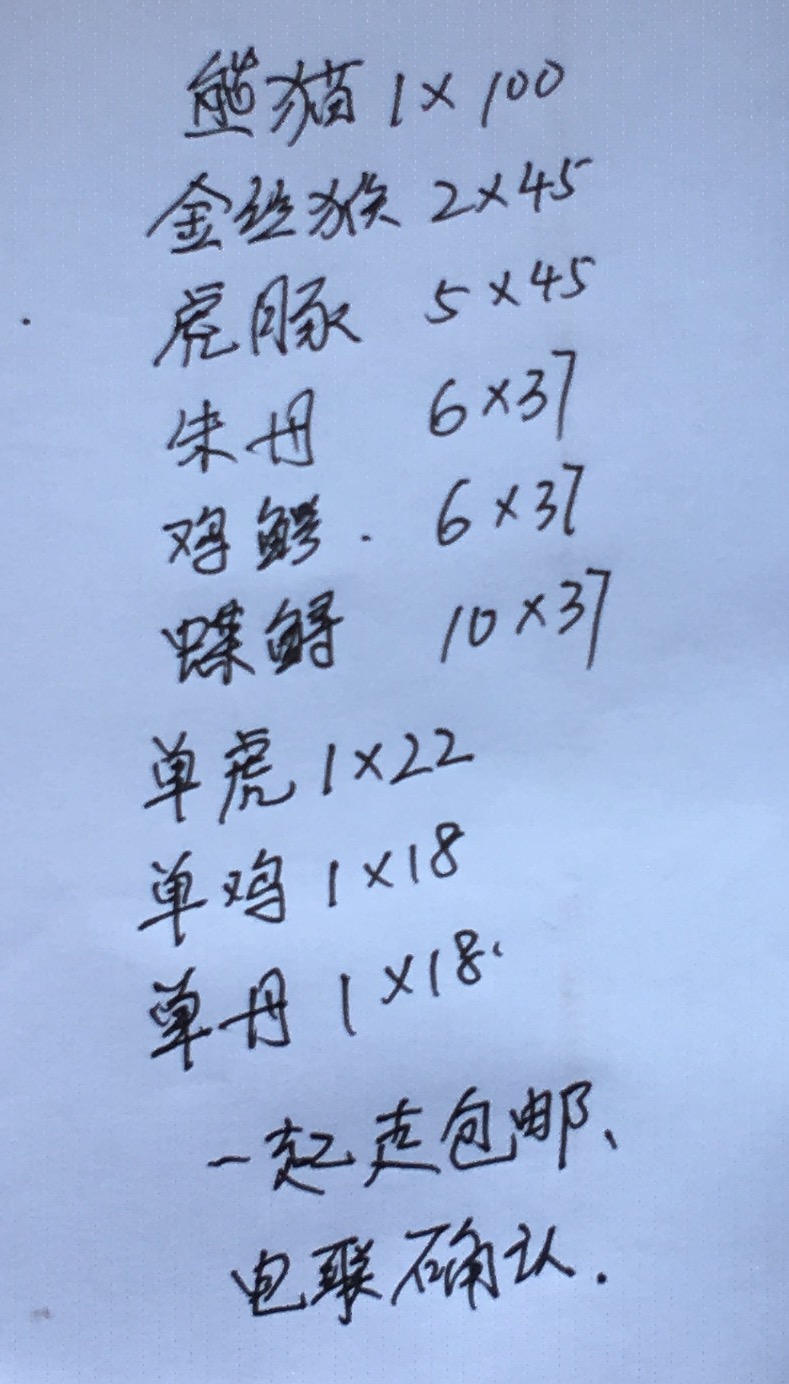 熊猫 1×100
金丝猴 2×45
虎豚 5×45
朱丹 6×37
鸡鳄. 6×37
蝶鲟 10×37
单虎 1×22
单鸡 1×18
单丹 1×18.
一起走包邮、
电联确认.